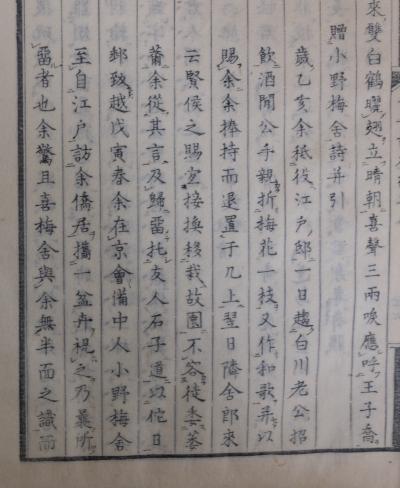 來雙白鶴曬翅立晴朝喜聲三兩唳應呼王子喬
贈小野梅舍詩并引
歲乙亥余祗役江戶邸一日趨白川老公招
飲酒間公手親折梅花一枝又作和歌并以
賜余余捧持而退置于几上翌日隣舍郎來
云賢侯之賜宜接換移我故園不容徒委萎
薾余從其言及歸畱托友人石子道以佗日
郵致越戊寅春余在京會備中人小野梅舍
至自江戶訪余僑居攜一盆卉視之乃曩所
畱者也余驚且喜梅舍與余無半面之識而